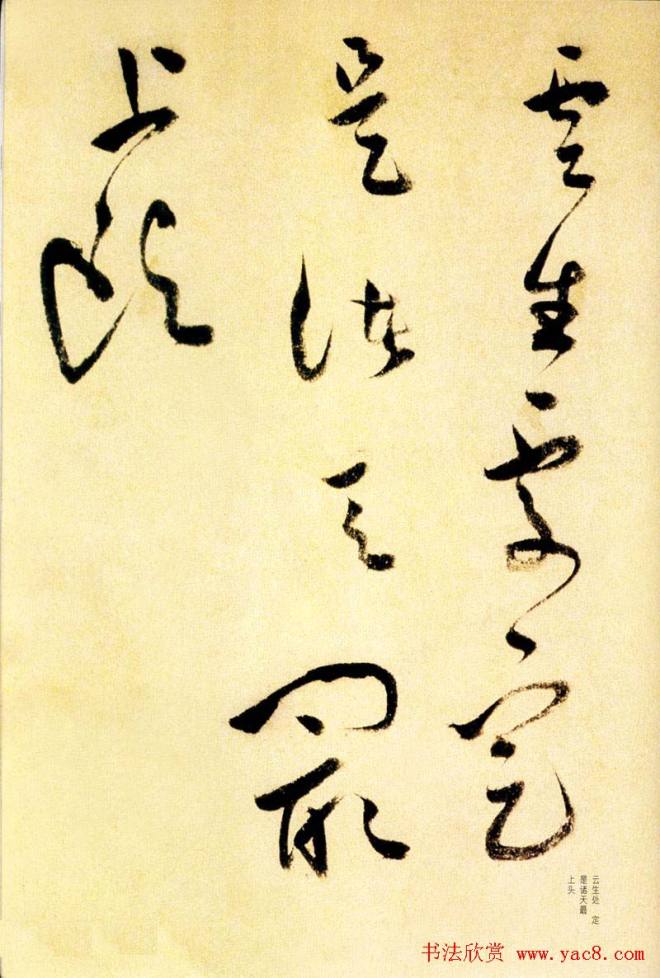 雲生處定
是諸天最
上頭
云生处 定
是诸天最
上头
书法欣赏 www.yac8.com